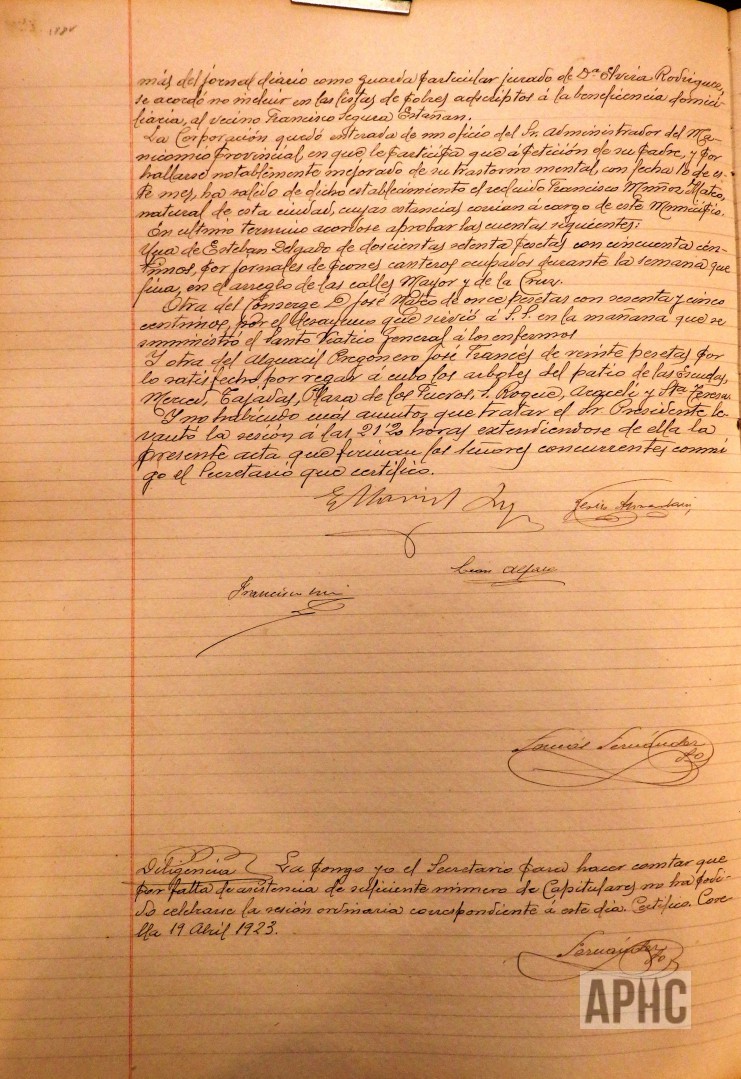 más del jornal diario como guarda particular jurado de Dª Elvira Rodriguez,
se acordó no incluir en las listas de pobres adscriptos á la beneficencia domici-
liaria, al vecino Francisco Segura Estañan.
La Corporación quedó enterada de un oficio del Sr. Administrador del Ma-
nicomio provincial, en que le participa que á petición de su padre, y por
hallarse notablemente mejorado de su trastorno mental, con fecha 10 de es-
te mes, ha salido de dicho establecimiento el recluido Francisco Muñoz Mateo,
natural de esta ciudad, cuyas estancias corrian á cargo de este Municipio.
En ultimo termino acordose aprobar las cuentas siguientes:
Una de Esteban Delgado de doscientas setenta pesetas con cincuenta cén-
timos, por jornales de peones canteros ocupados durante la semana que
fina, en el arreglo de las calles Mayor y de la Cruz.
Otra del Conserge D. José Mateo de once pesetas con sesenta y cinco
centimos, por el desayuno que sirvió á S.S. en la mañana que se
suministro el Santo Viatico General á los enfermos
Y otra del Alguacil Pregonero José Francés de veinte pesetas por
lo satisfecho por regar á cubo los arboles del patio de las Escuelas,
Merced, Tajadas, Plaza de los Fueros, S. Roque, Araceli y Sta. Teresa.
Y no habiendo más asuntos que tratar el Sr. Presidente le-
vantó la sesión á las 21'20 horas extendiendose de ella la
presente acta que firman los señores concurrentes conmi-
go el Secretario que certifico.
Francisco
Fernández
Diligencia La pongo yo el Secretario para hacer constar que
por falta de asistencia de suficiente número de Capitulares no ha podi-
do celebrarse la sesión ordinaria correspondiente á este dia. Certifico. Core-
lla 19 Abril 1923.
Fernández
APHC